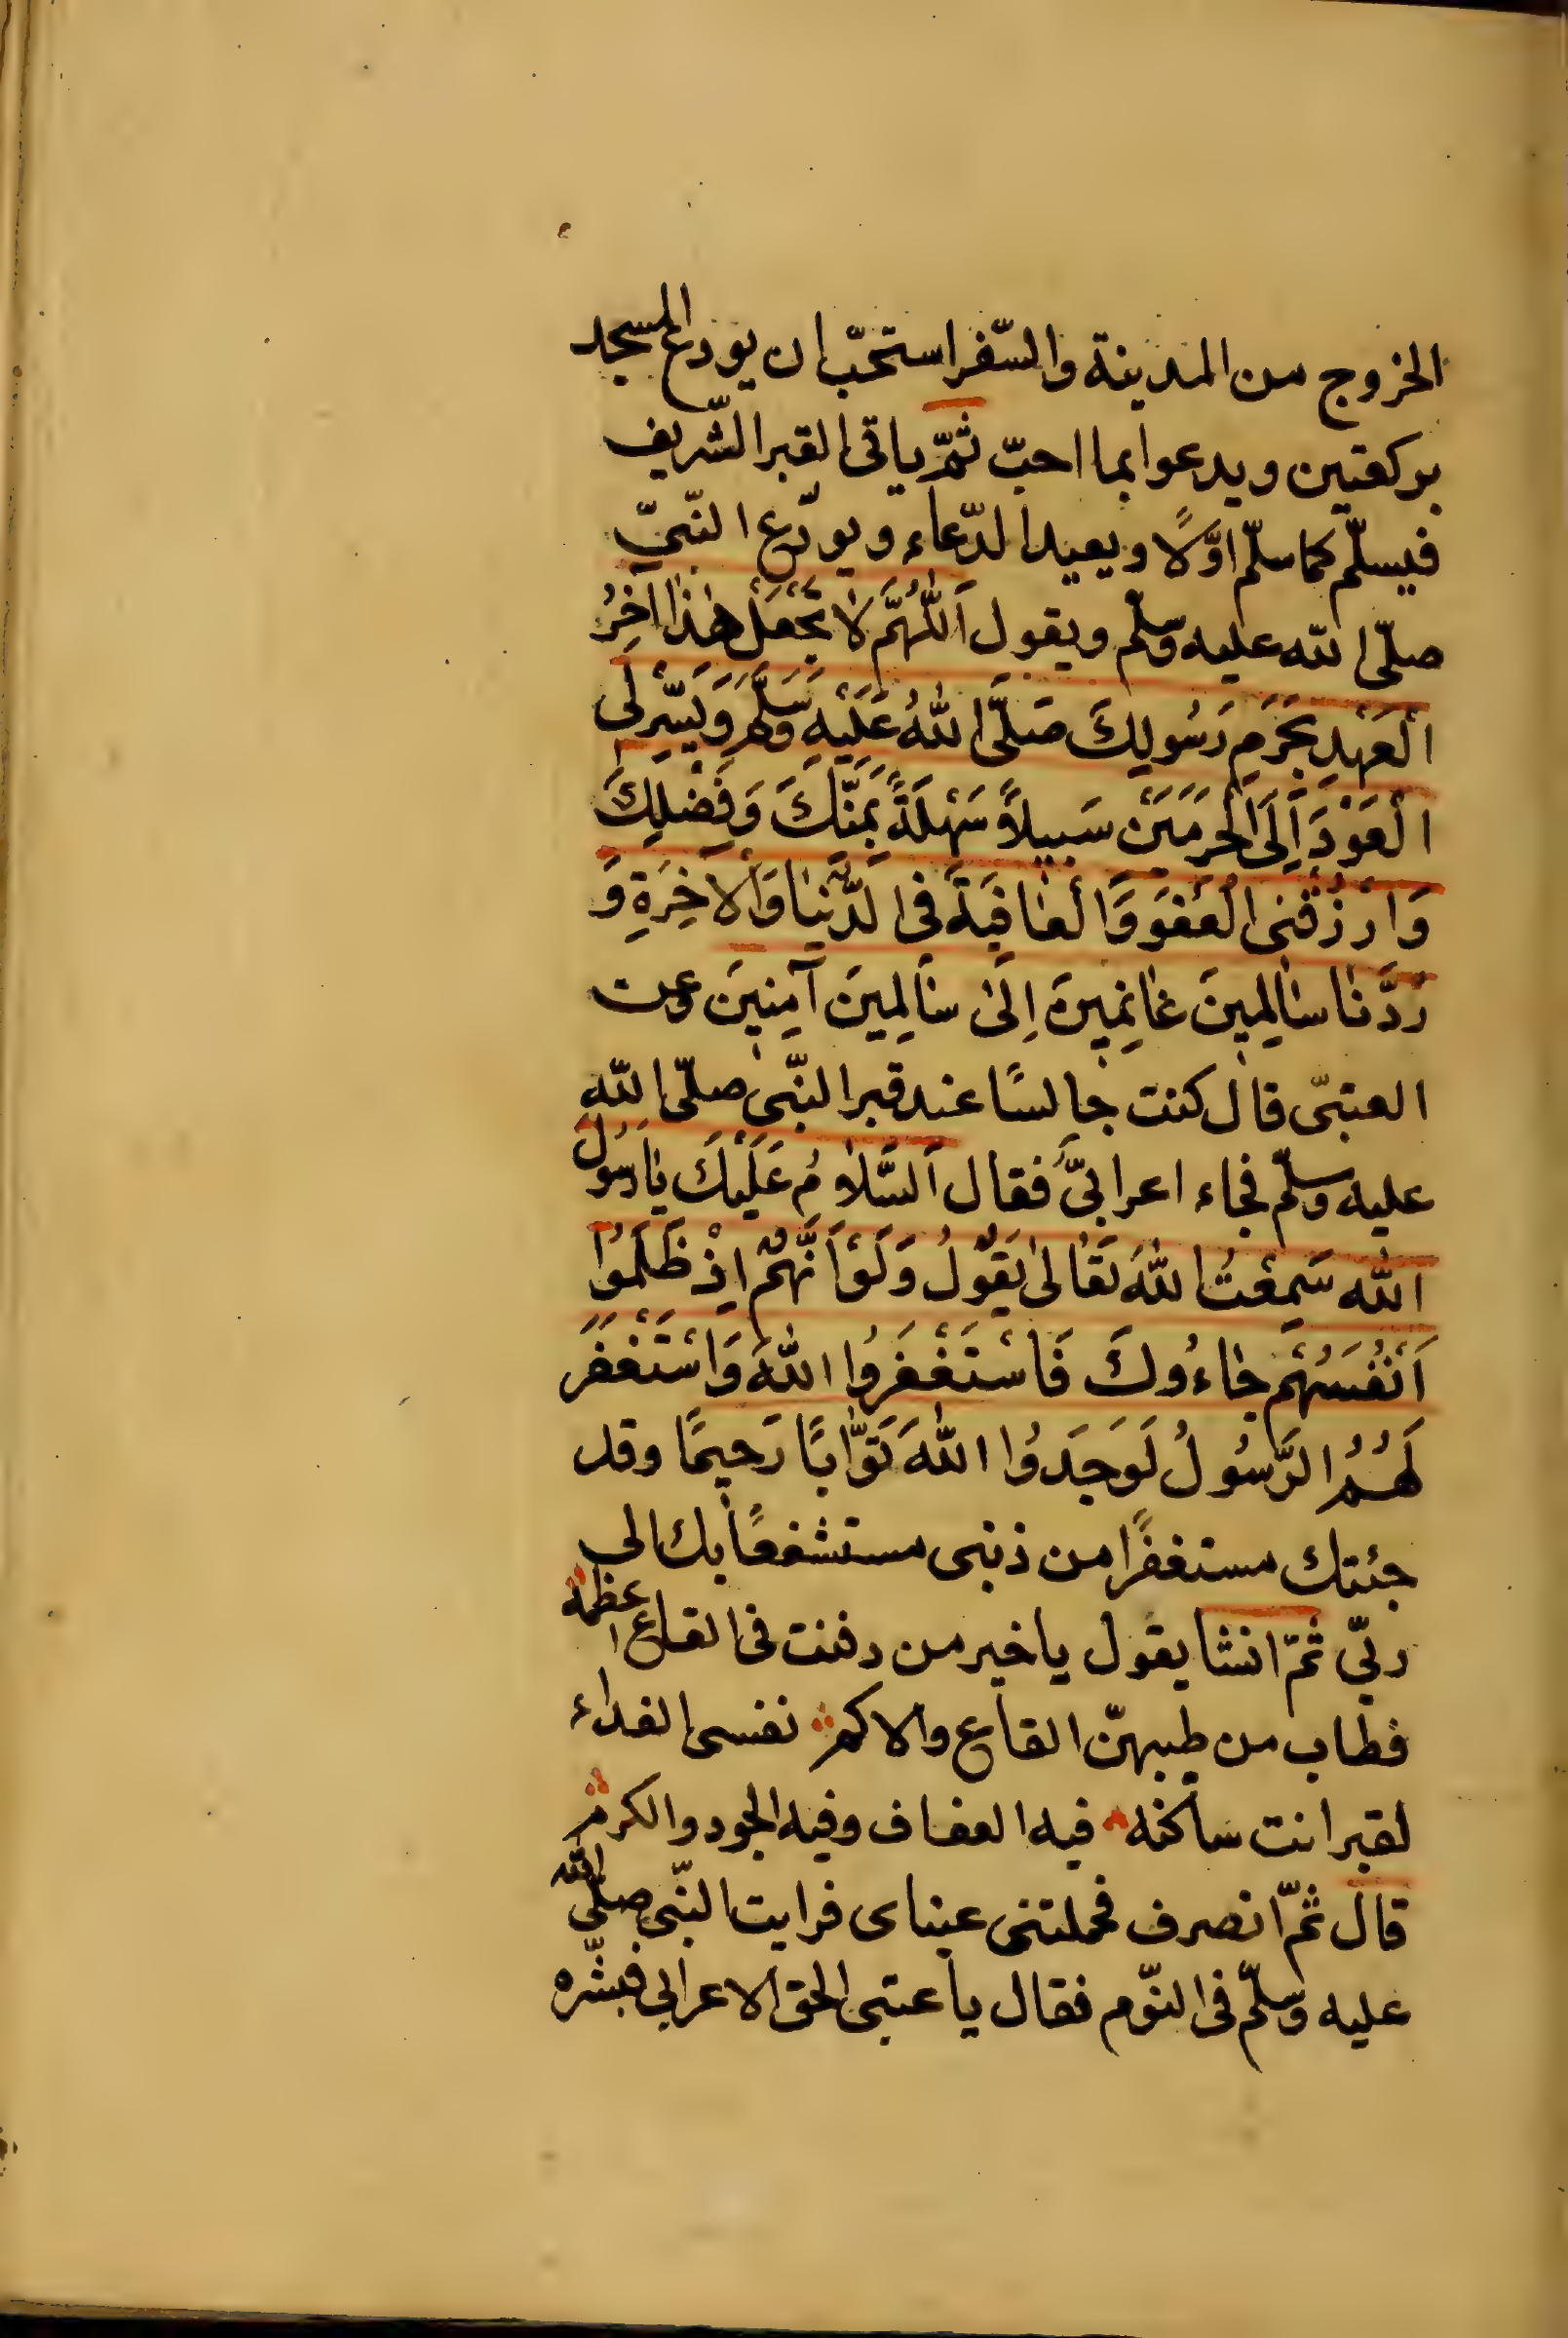 الخروج من المدينة والسّفر استحبّ ان يودع المسجد
بركعتين ويدعوا بما احبّ ثمّ ياتى القبر الشّريف
فيسلّم كما سلّم اوّلًا ويعيد الدّعاء ويودّع النّبىّ
صلّى الله عليه وسلّم ويقول اَللّٰهُمَّ لَا تَجْعَلْ هٰذَا آخِرُ
الْعَهْدِ بِحَرَمِ رَسُولِكَ صَلَّى اللّٰهُ عَلَيْهِ وَسَلَّمَ وَيَسِّرْ لى
الْعَوْدَ اِلَى الْحَرَمَيْنِ سَبِيلاً سَهْلَةً بِمَنِّكَ وَفَضْلِكَ
وَارْزُقْنى الْعَفْوَ وَالْعَافِيَةَ فى الدُّنْيَا وَالْاٰخِرَةِ وَ
رُدَّنَا سَالِمِينَ غَانِمِينَ اِلَىٰ سَالِمِينَ آمِنِينَ وعن
العتبىّ قال كنت جالسًا عند قبر النّبى صلّى الله
عليه وسلّم فجاء اعرابىٌّ فقال اَلسَّلَامُ عَلَيْكَ يَا رَسُولَ
اللّٰه سَمِعْتُ اللّٰهَ تَعَالىٰ يَقُولُ وَلَوْ اَنَّهُمْ اِذْ ظَلَمُوا
اَنْفُسَهُمْ جَاءُوكَ فَاسْتَغْفَرُوا اللّٰهَ وَاسْتَغْفَرَ
لَهُمُ الرَّسُولُ لَوَجَدُوا اللّٰهَ تَوَّابًا رَحِيمًا وقد
جئتك مستغفرًا من ذنبى مستشفعًا بك الى
ربّى ثمّ انشا يقول يا خير من دفنت فى القاع اعظمه
فطاب من طيبهنّ القاع والاكم نفسى الفداء
لقبر انت ساكنه فيه العفاف وفيه الجود والكرم
قال ثمّ انصرف فحملتنى عيناى فرايت النّبى صلّى الله
عليه وسلّم فى النّوم فقال يا عتبى الحق الاعرابى فبشّره